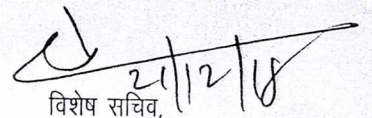 21/12/18
विशेष सचिव,